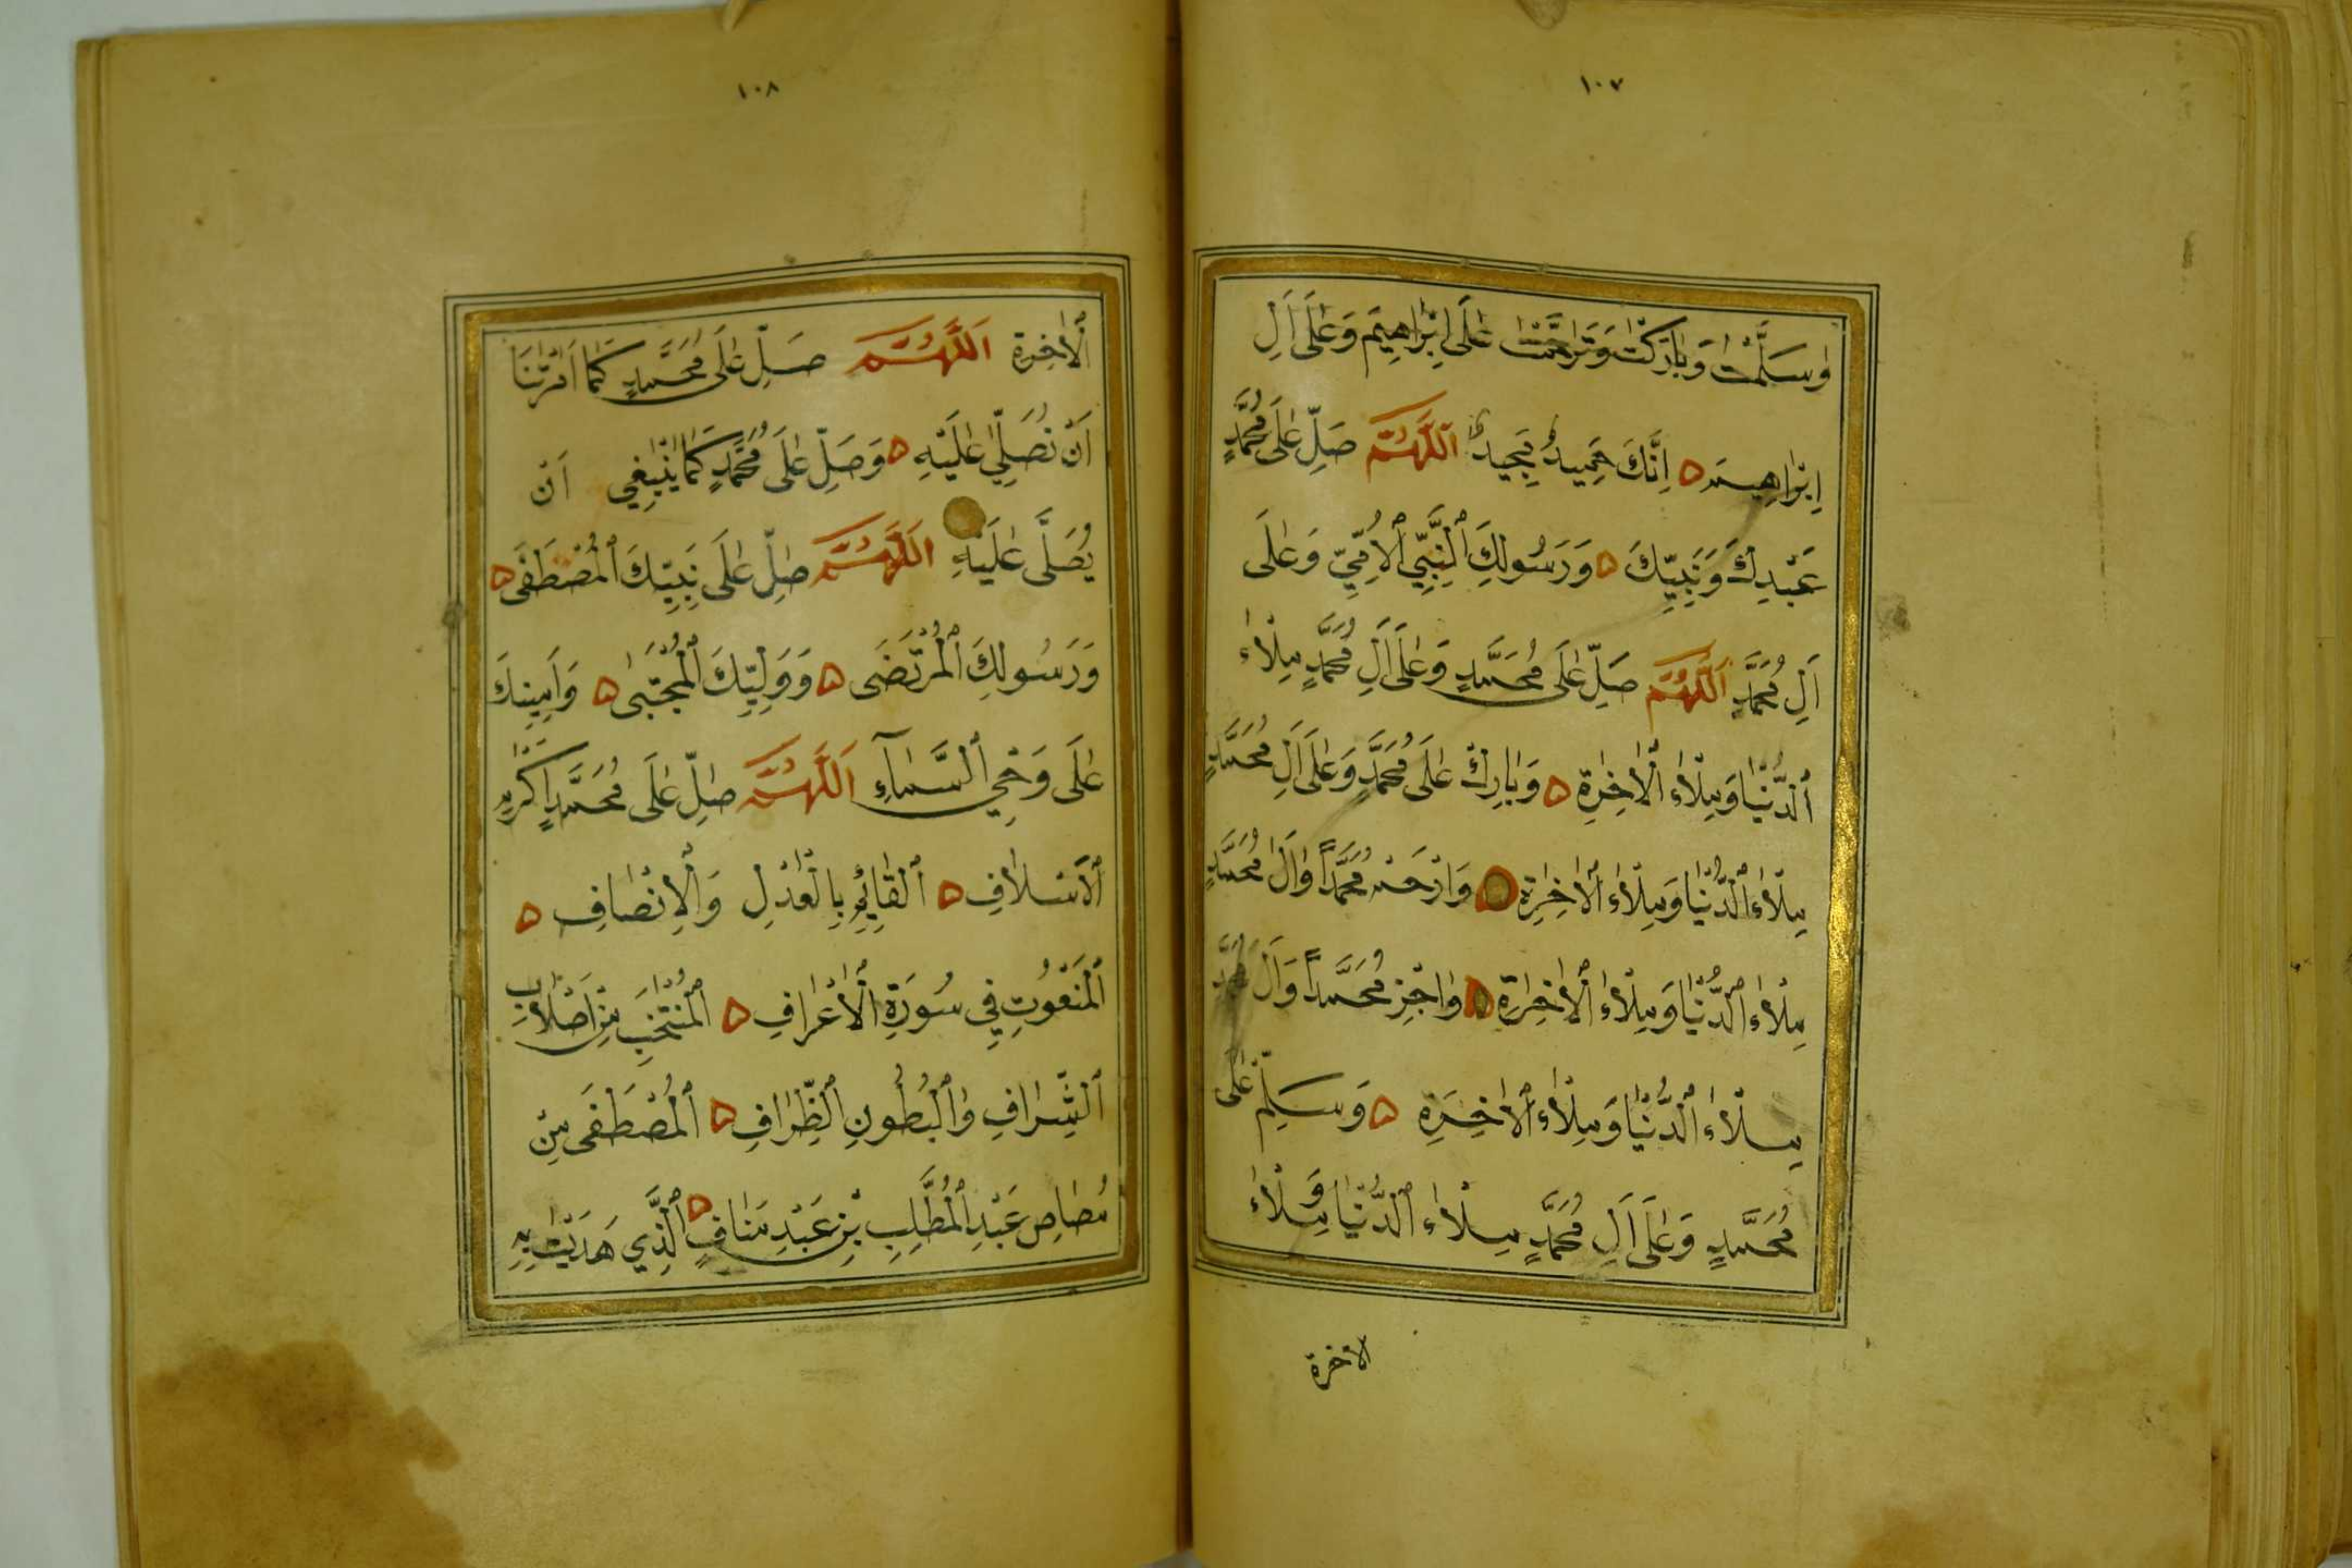 ١٠٧
وَسَلَّمْتَ وَبَارَكْتَ وَتَرَحَّمْتَ عَلَى اِبْرَاهِيمَ وَعَلَى اَلِ
اِبْرَاهِيمَ ۵ اِنَّكَ حَمِيدٌ مَجِيدٌ اَللَّهُمَّ صَلِّ عَلَى مُحَمَّدٍ
عَبْدِكَ وَنَبِيِّكَ ۵ وَرَسُولِكَ النَّبِيِّ الْاُمِّيِّ وَعَلَى
اَلِ مُحَمَّدٍ اَللَّهُمَّ صَلِّ عَلَى مُحَمَّدٍ وَعَلَى اَلِ مُحَمَّدٍ مِلْاَءَ
الدُّنْيَا وَمِلْاَءَ الْاَخِرَةِ ۵ وَبَارِكْ عَلَى مُحَمَّدٍ وَعَلَى اَلِ مُحَمَّدٍ
مِلْاَءَ الدُّنْيَا وَمِلْاَءَ الْاَخِرَةِ ۵ وَارْحَمْ مُحَمَّدًا وَاَلَ مُحَمَّدٍ
مِلْاَءَ الدُّنْيَا وَمِلْاَءَ الْاَخِرَةِ ۵ وَاجْزِ مُحَمَّدًا وَاَلَ مُحَمَّدٍ
مِلْاَءَ الدُّنْيَا وَمِلْاَءَ الْاَخِرَةِ ۵ وَسَلِّمْ عَلَى
مُحَمَّدٍ وَعَلَى اَلِ مُحَمَّدٍ مِلْاَءَ الدُّنْيَا وَمِلْاَءَ
الاخرة
١٠٨
الْاَخِرَةِ اَللَّهُمَّ صَلِّ عَلَى مُحَمَّدٍ كَمَا اَمَرْتَنَا
اَنْ نُصَلِّيَ عَلَيْهِ ۵ وَصَلِّ عَلَى مُحَمَّدٍ كَمَا يَنْبَغِي اَنْ
يُصَلَّى عَلَيْهِ اَللَّهُمَّ صَلِّ عَلَى نَبِيِّكَ الْمُصْطَفَى ۵
وَرَسُولِكَ الْمُرْتَضَى ۵ وَوَلِيِّكَ الْمُجْتَبَى ۵ وَاَمِينِكَ
عَلَى وَحْيِ السَّمَآءِ اَللَّهُمَّ صَلِّ عَلَى مُحَمَّدٍ اَكْرَمِ
الْاَسْلَافِ ۵ الْقَائِمِ بِالْعَدْلِ وَالْاِنْصَافِ ۵
الْمَنْعُوتِ فِي سُورَةِ الْاَعْرَافِ ۵ الْمُنْتَخَبِ مِنْ اَصْلَابِ
الشِّرَافِ وَالْبُطُونِ الظِّرَافِ ۵ الْمُصْطَفَى مِنْ
مُصَاصِ عَبْدِ الْمُطَّلِبِ بْنِ عَبْدِ مَنَافٍ ۵ الَّذِي هَدَيْتَ بِهِ